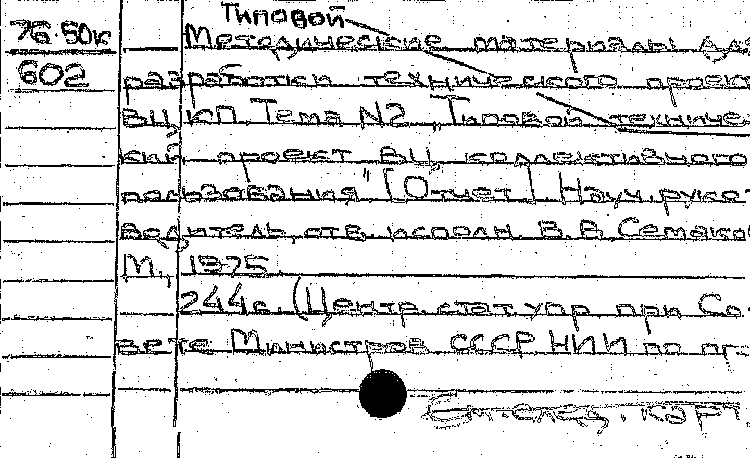 Типовой
76.50к
Методические материалы для
602
разработки технического проек
ВЦ КП. Тема N2 „Типовой техничес
кий проект ВЦ коллективного
пользования" [Отчет] Науч. руко-
водитель, отв. исполн. В.В. Семако
М., 1975.
244с. (Центр. стат. упр. при Со-
вете Министров СССР НИИ по пр-
См. след. карт.